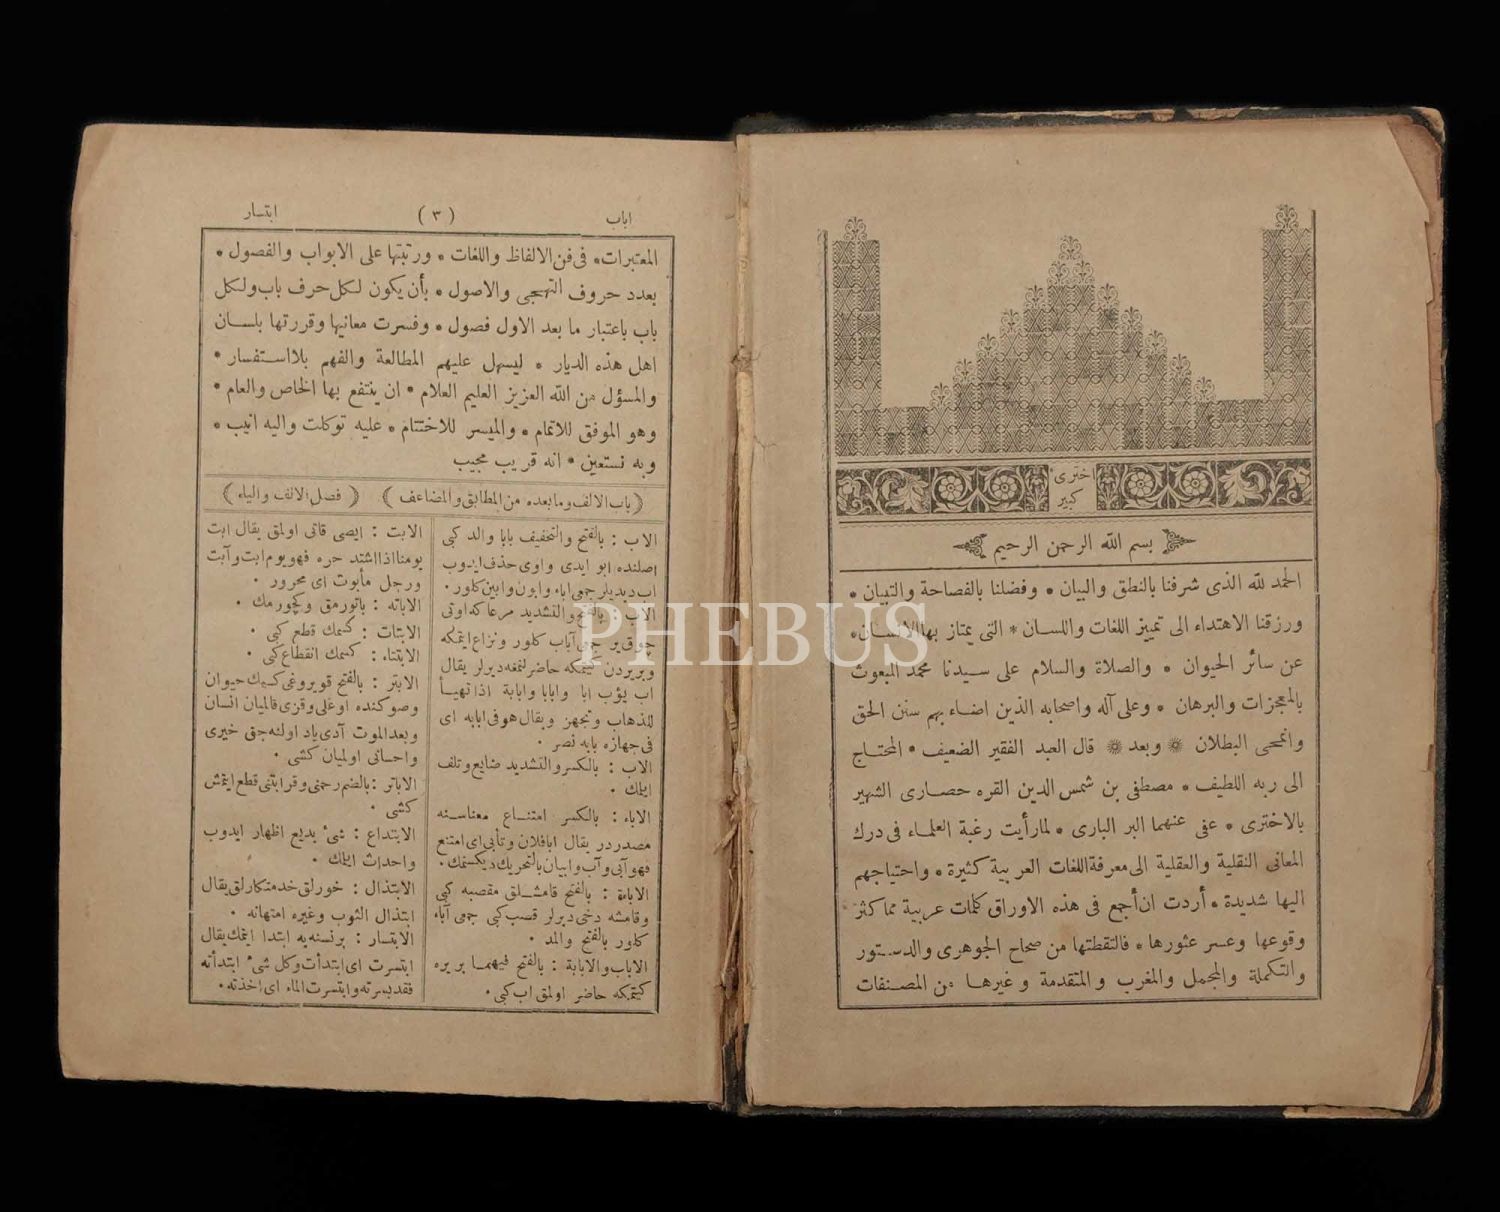 اخترى
كبير
بسم الله الرحمن الرحيم
الحمد لله الذى شرفنا بالنطق والبيان * وفضلنا بالفصاحة والتبيان *
ورزقنا الاهتداء الى تمييز اللغات واللسان * التى يمتاز بها الانسان *
عن سائر الحيوان * والصلاة والسلام على سيدنا محمد المبعوث
بالمعجزات والبرهان * وعلى آله واصحابه الذين اضاء بهم سنن الحق
وانمحى البطلان * وبعد * قال العبد الفقير الضعيف * المحتاج
الى ربه اللطيف * مصطفى بن شمس الدين القره حصارى الشهير
بالاخترى * عفى عنهما البر البارى * لما رأيت رغبة العلماء فى درك
المعانى النقلية والعقلية الى معرفة اللغات العربية كثيرة * واحتياجهم
اليها شديدة * أردت ان أجمع فى هذه الاوراق كلمات عربية مما كثر
وقوعها وعسر عثورها * فالتقطتها من صحاح الجوهرى والدستور
والتكملة والمجمل والمغرب والمتقدمة وغيرها من المصنفات
اباب ( ٣ ) ابتسار
المعتبرات * فى فن الالفاظ واللغات * ورتبتها على الابواب والفصول *
بعدد حروف التهجى والاصول * بأن يكون لكل حرف باب ولكل
باب باعتبار ما بعد الاول فصول * وفسرت معانيها وقررتها بلسان
اهل هذه الديار * ليسهل عليهم المطالعة والفهم بلا استفسار *
والمسؤل من الله العزيز العليم العلام * ان ينتفع بها الخاص والعام *
وهو الموفق للاتمام * والميسر للاختتام * عليه توكلت واليه انيب *
وبه نستعين * انه قريب مجيب
( باب الالف وما بعده من المطابق والمضاعف ) ( فصل الالف والباء )
الاب : بالفتح والتخفيف بابا والد كبى
اصلنده ابو ايدى واوى حذف ايدوب
اب ديديلر جمعى اباء وابون وابين كلور .
الاب : بالفتح والتشديد مرعا كه اوتى
چوق ير جمعى آباب كلور ونزاع ايتمكه
وبريردن كيتمكه حاضر لنمغه ديرلر يقال
اب يؤب ابا وابابا وابابة اذا تهيأ
للذهاب وتجهز ويقال هو فى ابابه اى
فى جهازه بابه نصر .
الاب : بالكسر والتشديد ضايع وتلف
ايلمك .
الاباء : بالكسر امتناع معناسنه
مصدر در يقال ابا فلان وتأبى اى امتنع
فهو آبى وآب وابيان بالتحريك ديكسمك .
الاباءة : بالفتح قامشلق مقصبه كبى
وقامشه دخى ديرلر قسب كبى جمعى آباء
كلور بالفتح والمد .
الاباب والابابة : بالفتح فيهما بر يره
كيتمكه حاضر اولمق اب كبى .
الابت : ايصى قاتى اولمق يقال ابت
يومنا اذا اشتد حره فهو يوم ابت وآبت
ورجل مأبوت اى محرور .
الاباته : ياتورمق وكچورمك .
الابتات : كسمك قطع كبى .
الابتتاء : كسمك انقطاع كبى .
الابتر : بالفتح قويروغى كسيك حيوان
وصوكنده اوغلى وقزى قالميان انسان
وبعد الموت آدى ياد اولنه جق خيرى
واحسانى اولميان كشى .
الاباتر : بالضم رحمنى وقرابتنى قطع ايتمش
كشى .
الابتداع : شئ بديع اظهار ايدوب
واحداث ايلمك .
الابتذال : خورلق خدمتكارلق يقال
ابتذال الثوب وغيره امتهانه .
الابتسار : بر نسنه يه ابتدا ايتمك يقال
ابتسرت اى ابتدأت وكل شئ ابتدأته
فقد بسرته وابتسرت الماء اى اخذته .
PHEBUS